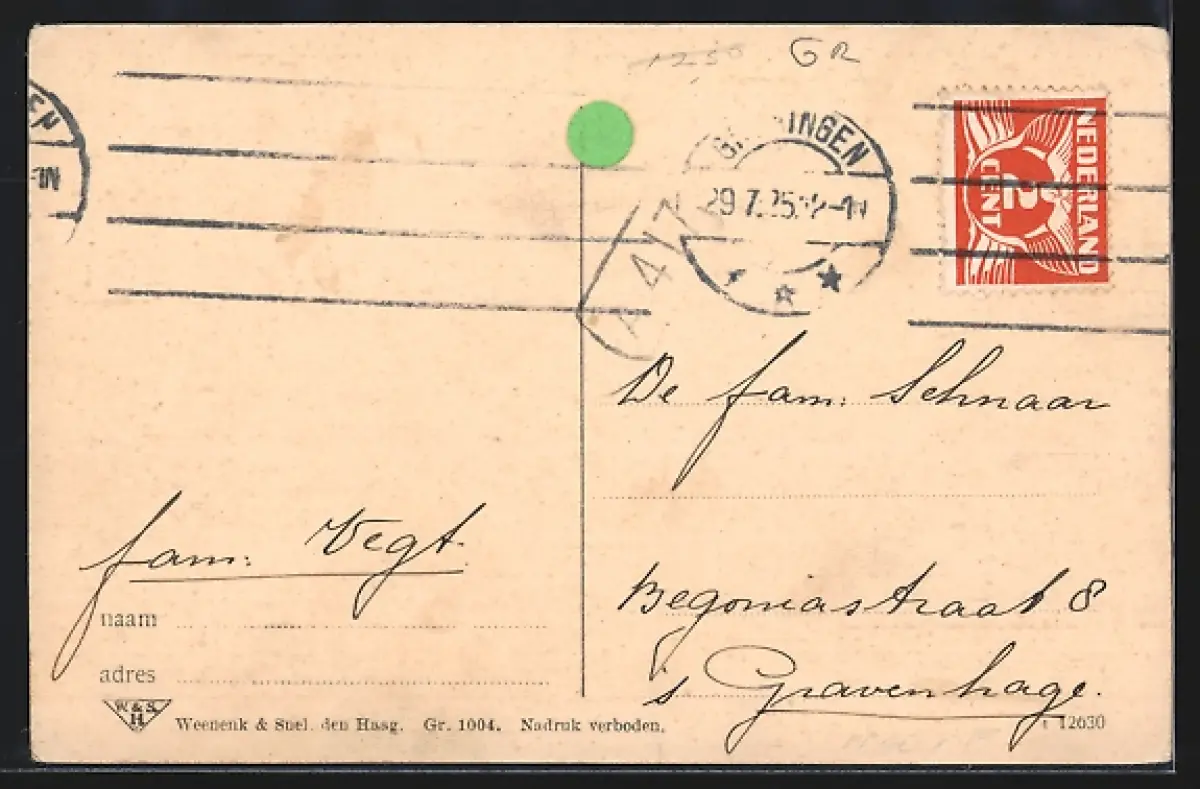 1250 GR
EN
GR INGEN
29 7.25.12-1N
-1N
A 4/7
NEDERLAND
2
CENT
De fam: Schnaar
fam: Vegt.
Begoniastraat 8
naam
adres
's Gravenhage.
W. & S.
H
Weenenk & Snel. den Haag. Gr. 1004. Nadruk verboden.
12630